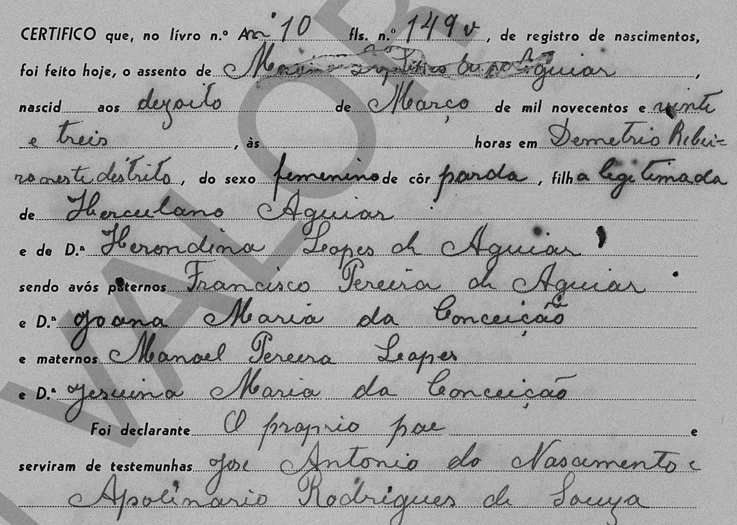 CERTIFICO que, no livro n.º A 10 fls. n.º 149v, de registro de nascimentos,
foi feito hoje, o assento de Maria Aguiar,
nascid aos dezoito de Março de mil novecentos e vinte
e treis, às horas em Demetrio Ribei=
ro neste distrito, do sexo femenino de côr parda, filha legitimada
de Herculano Aguiar
e de D.ª Herondina Lopes de Aguiar
sendo avós paternos Francisco Pereira de Aguiar
e D.ª Joana Maria da Conceição
e maternos Manoel Pereira Lopes
e D.ª Jesuina Maria da Conceição
Foi declarante O proprio pae e
serviram de testemunhas José Antonio do Nascimento e
Apolinario Rodrigues de Souza
VALOR